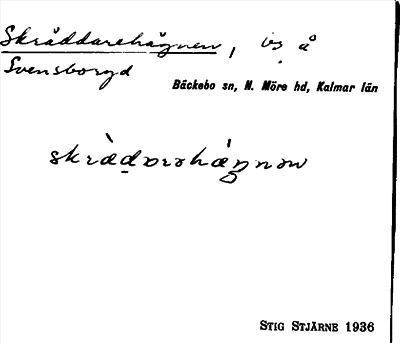 Skräddarehägnen, bs å
Svensborgd
Bäckebo sn, N. Möre hd, Kalmar län
STIG STJÄRNE 1936